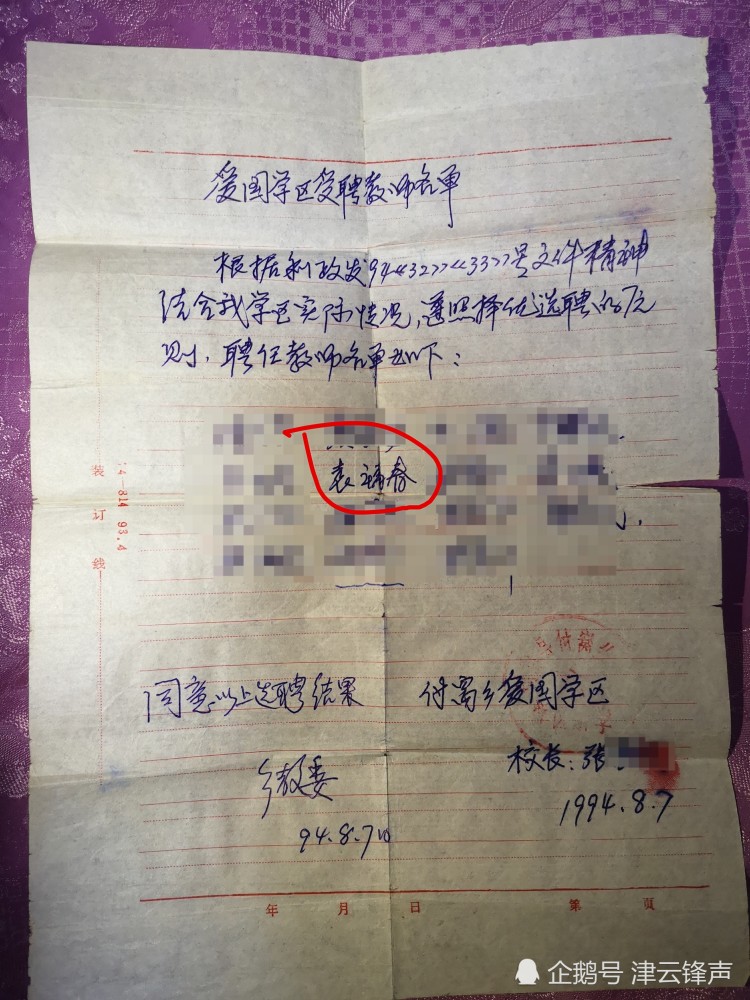 爱国学区受聘教师名单
根据利政发94<32><33>号文件精神
结合我学区实际情况,遵照择优选聘的原
则,聘任教师名单如下:
袁瑞春
装订线
74-814 93.4
同意以上选聘结果
付窝乡爱国学区
校长:张
乡教委
1994.8.7
94.8.7日
年 月 日 第 页
企鹅号 津云锋声